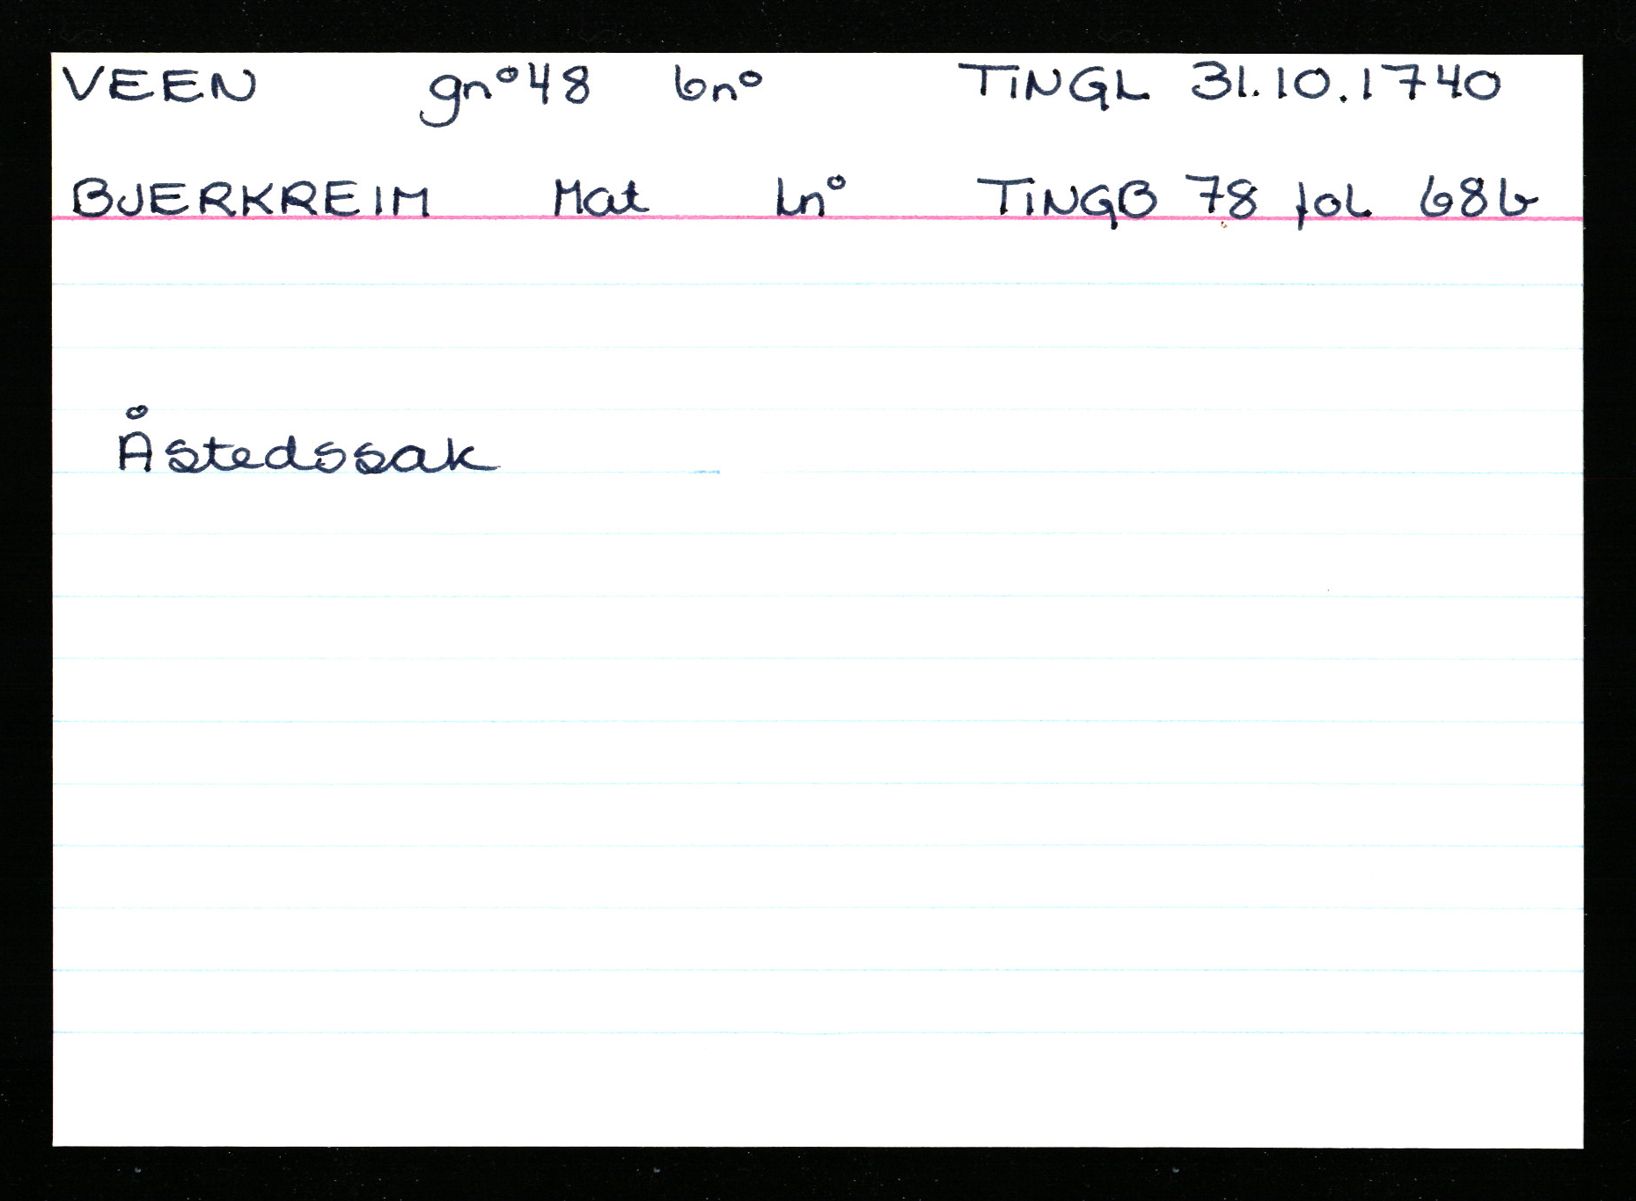 VEEN gn°48 bn° TINGL 31.10.1740
BJERKREIM Mat Ln° TINGB 78 fol 68b
Åstedssak